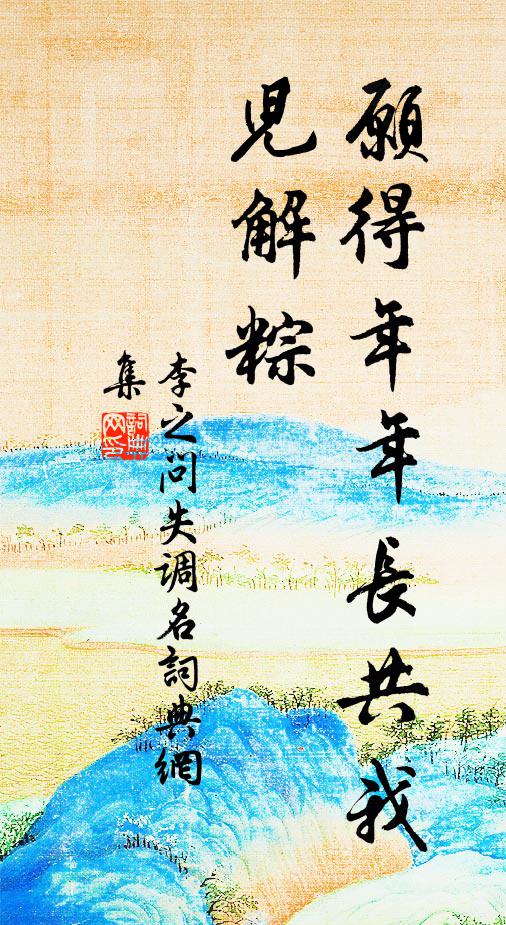 願得年年長共我
兒解粽
李之问失调名詞典網
集
詞典
网印